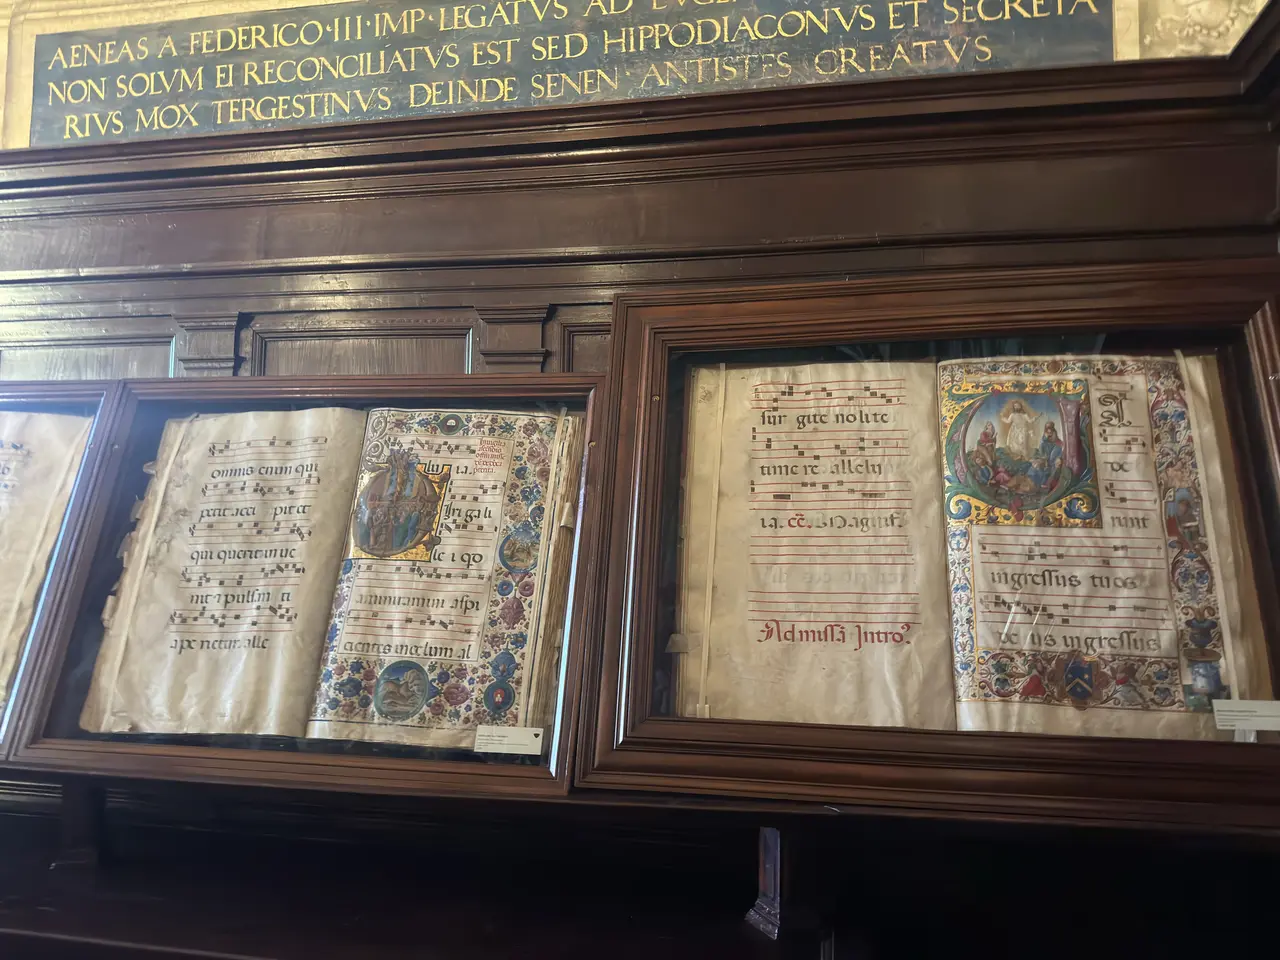 AENEAS A FEDERICO·III·IMP·LEGATVS AD
NON SOLVM EI RECONCILIATVS EST SED HIPPODIACONVS ET SECRETA
RIVS MOX TERGESTINVS DEINDE SENEN· ANTISTES CREATVS
omnis enim qui
petit acci pit et
qui querit inue
nit &pulsan ti
ape rietur alle
lu ia.
Viri gali
le i qd
ammiramini aspi
cientes incelum al
sur gite nolite
time re allelu
ia. cc̄.
Ad missā Intro?
runt
ingressus tuos
de us ingressus